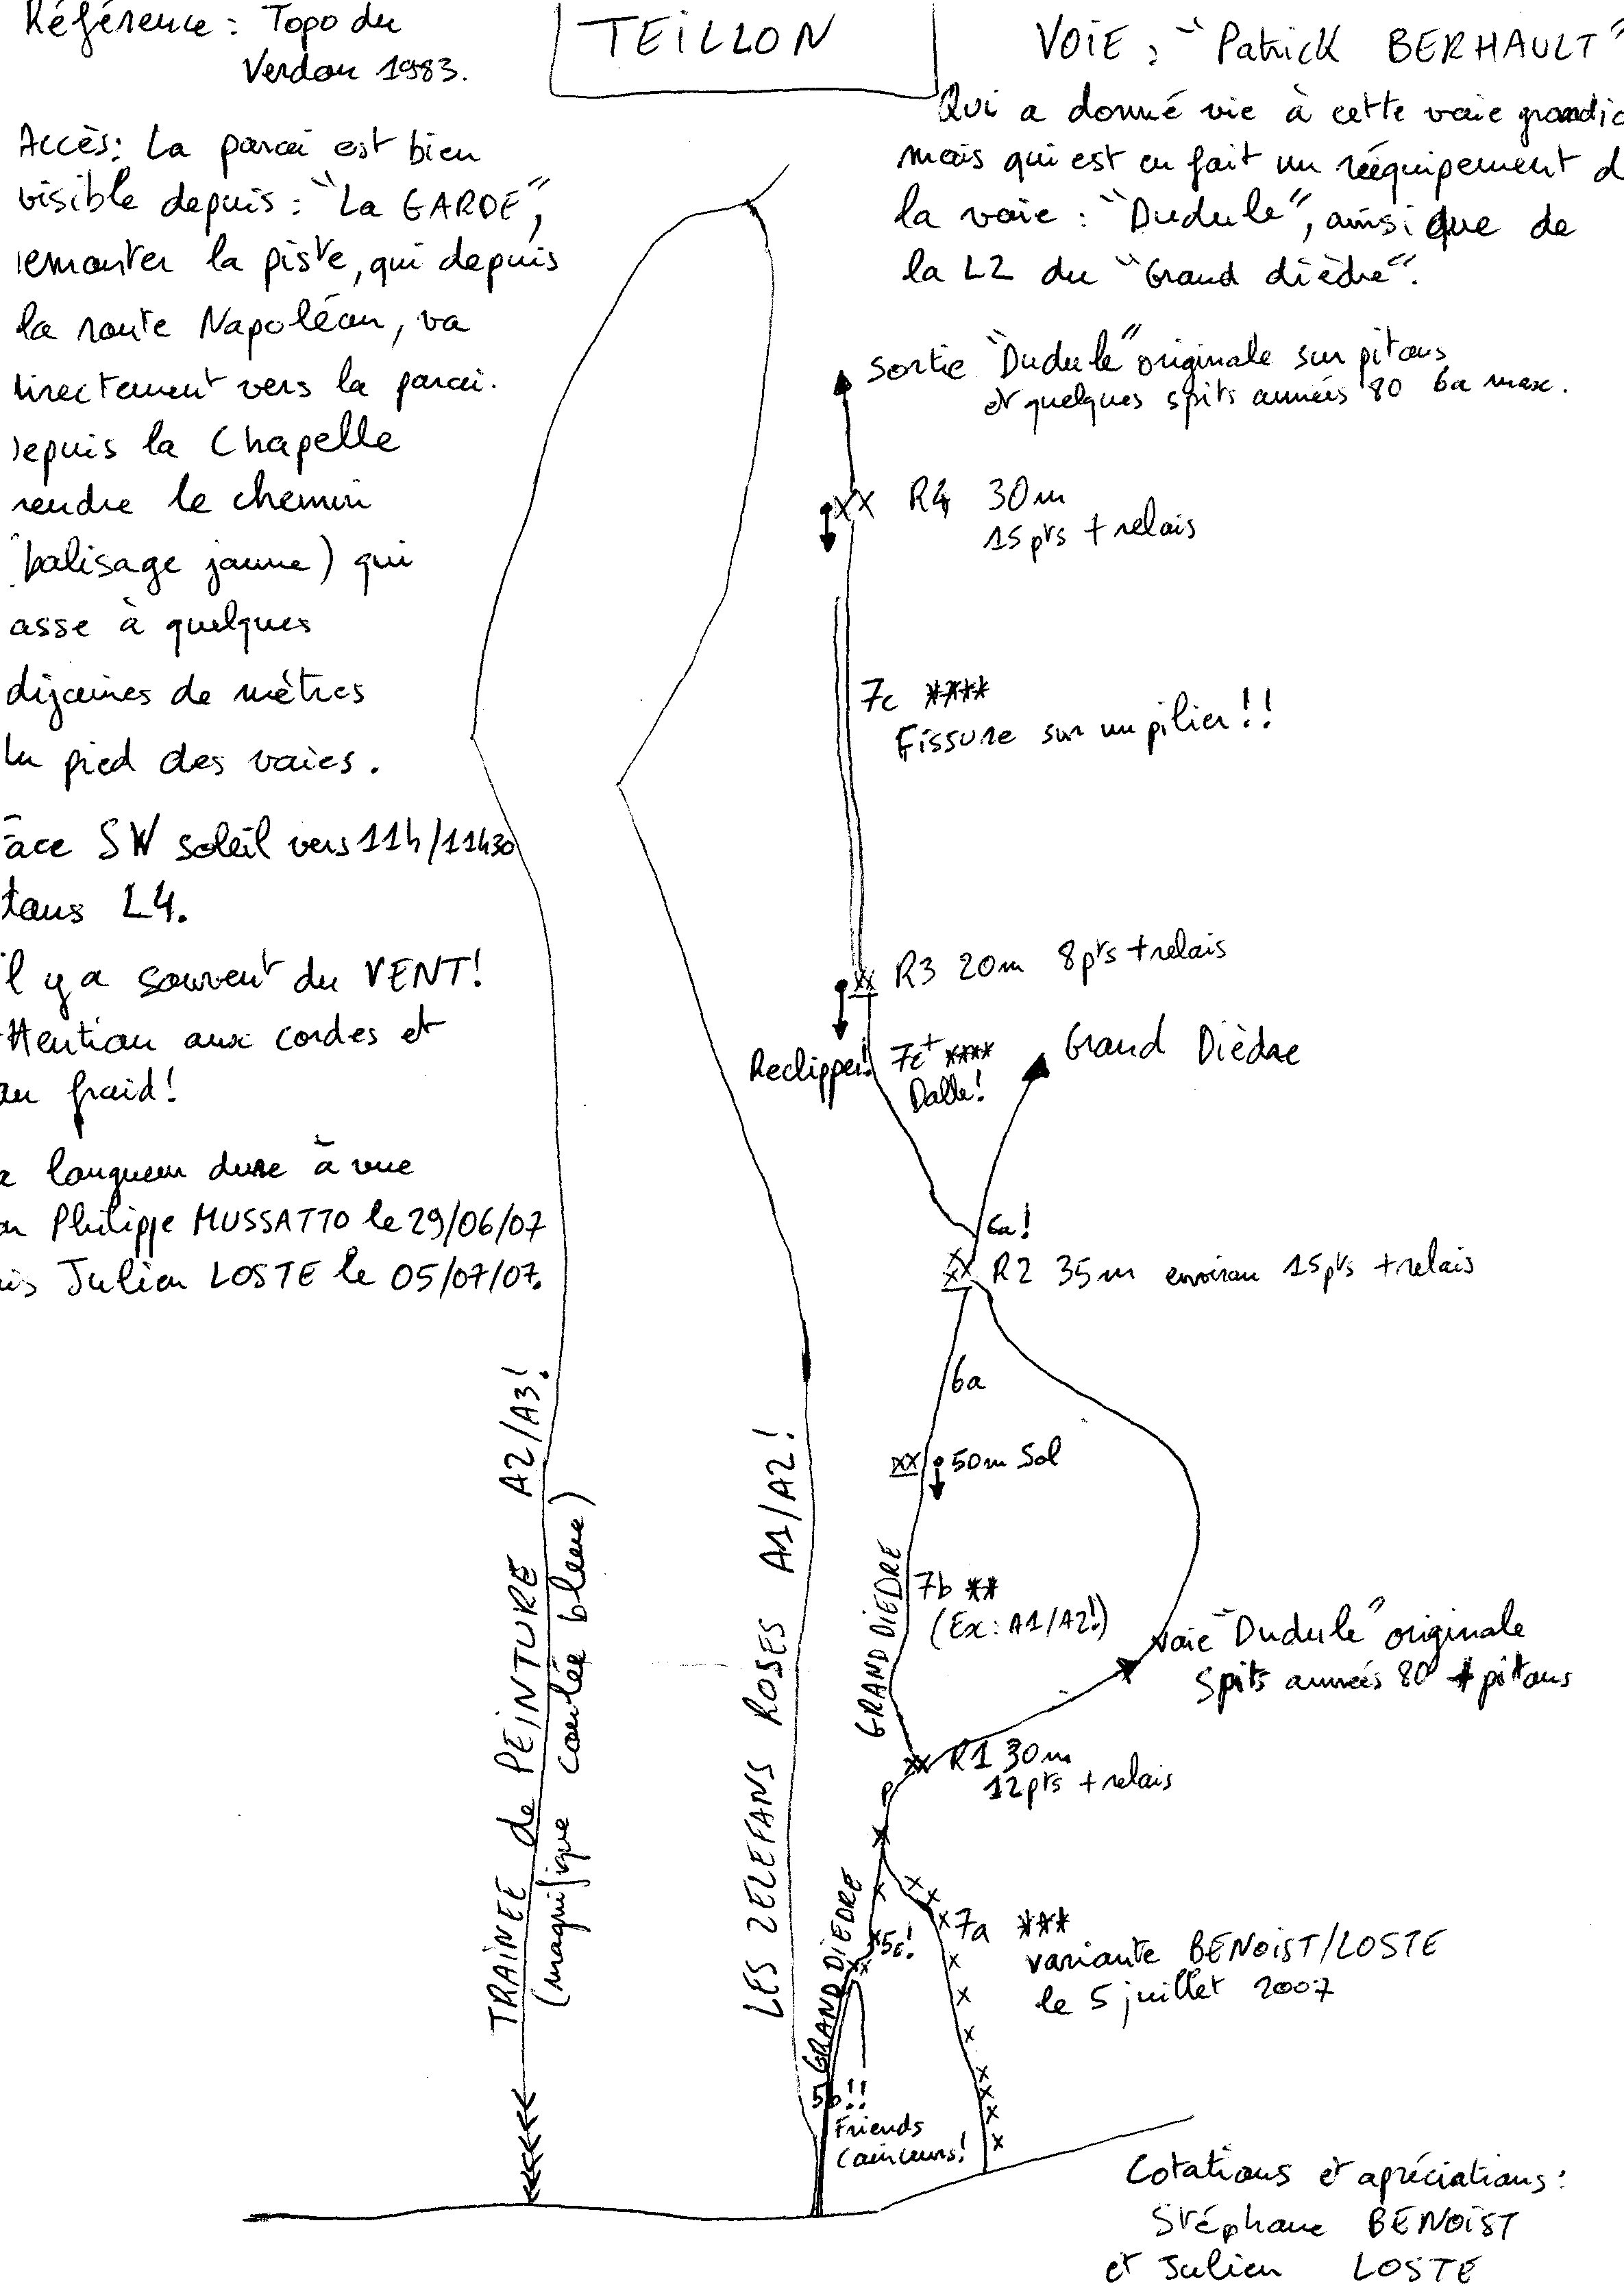 Référence : Topo du
Verdon 1983.
TEILLON
VOIE : "Patrick BERHAULT"
Qui a donné vie à cette voie grandio
mais qui est en fait un rééquipement d
la voie : "Dudule", ainsi que de
la L2 du "Grand dièdre".
Accès : La paroi est bien
visible depuis : "La GARDE",
remonter la piste, qui depuis
la route Napoléon, va
directement vers la paroi.
Depuis la Chapelle
rendre le chemin
(balisage jaune) qui
asse à quelques
dizaines de mètres
du pied des voies.
ace SW soleil vers 11h/11h30
dans L4.
il y a souvent du VENT!
ttention aux cordes et
au froid!
a longueur dure à vue
on Philippe MUSSATTO le 29/06/07
uis Julien LOSTE le 05/07/07.
sortie "Dudule" originale sur pitons
et quelques spits années 80 6a max.
R4 30m
15 pts + relais
7c ****
Fissure sur un pilier!!
R3 20m 8pts + relais
Reclipper!
7c+ ****
Dalle!
Grand Dièdre
6a!
R2 35m environ 15pts + relais
6a
50m Sol
GRAND DIEDRE
7b **
(Ex : A1/A2!)
voie "Dudule" originale
Spits années 80 + pitons
R1 30m
12pts + relais
P
GRAND DIEDRE
5c!
7a ***
variante BENOIST/LOSTE
le 5 juillet 2007
5b!!
Friends
Coinceurs!
TRAINEE de PEINTURE A2/A3!
(magnifique coulée bleue)
LES ZELEFANS ROSES A1/A2!
Cotations et apréciations :
Stéphane BENOIST
et Julien LOSTE